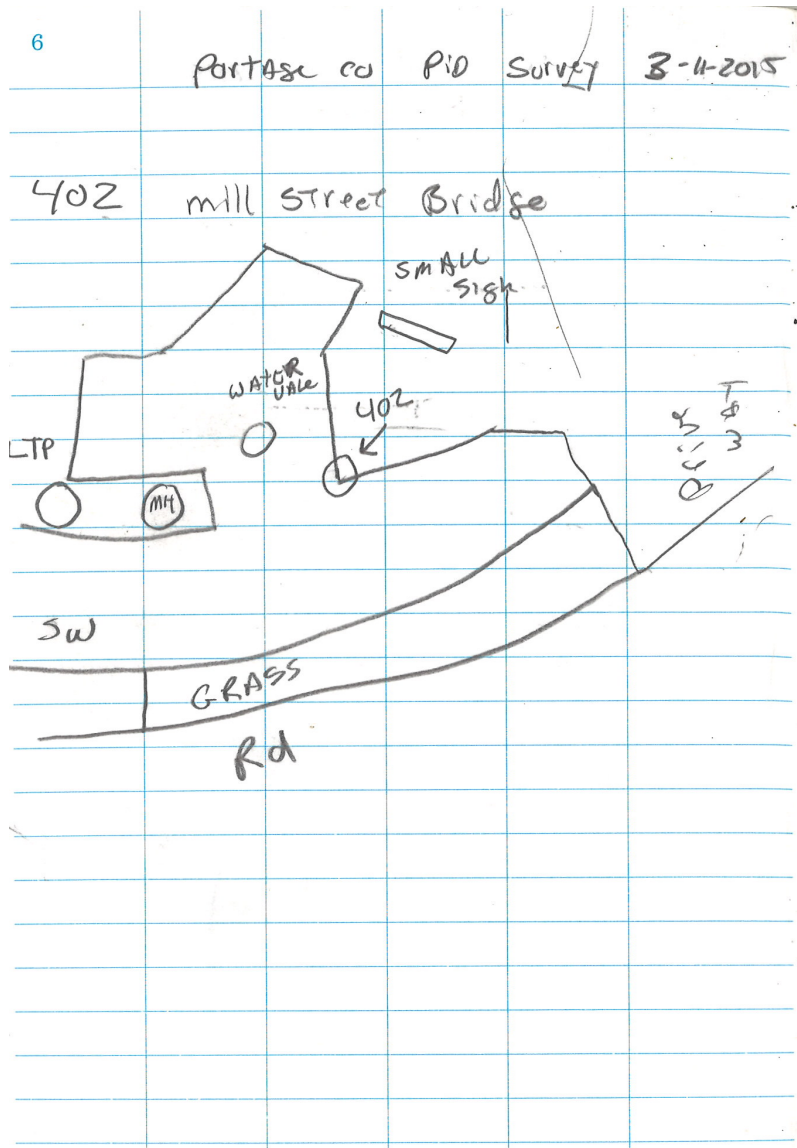 6
Portage co PID Survey 3-11-2015
402 mill Street Bridge
SMALL
Sign
WATER
VALE
402
LTP
MH
SW
GRASS
Rd